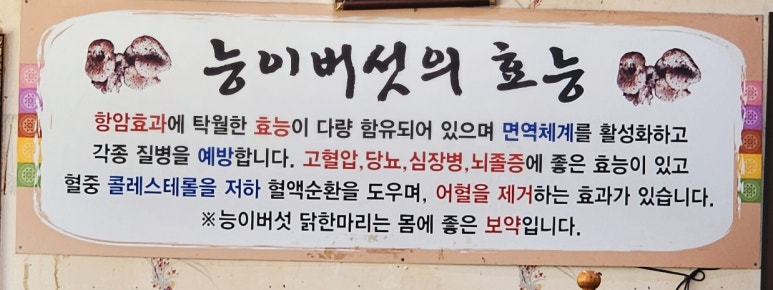 능이버섯의 효능
항암효과에 탁월한 효능이 다량 함유되어 있으며 면역체계를 활성화하고
각종 질병을 예방합니다. 고혈압,당뇨,심장병,뇌졸증에 좋은 효능이 있고
혈중 콜레스테롤을 저하 혈액순환을 도우며, 어혈을 제거하는 효과가 있습니다.
※능이버섯 닭한마리는 몸에 좋은 보약입니다.